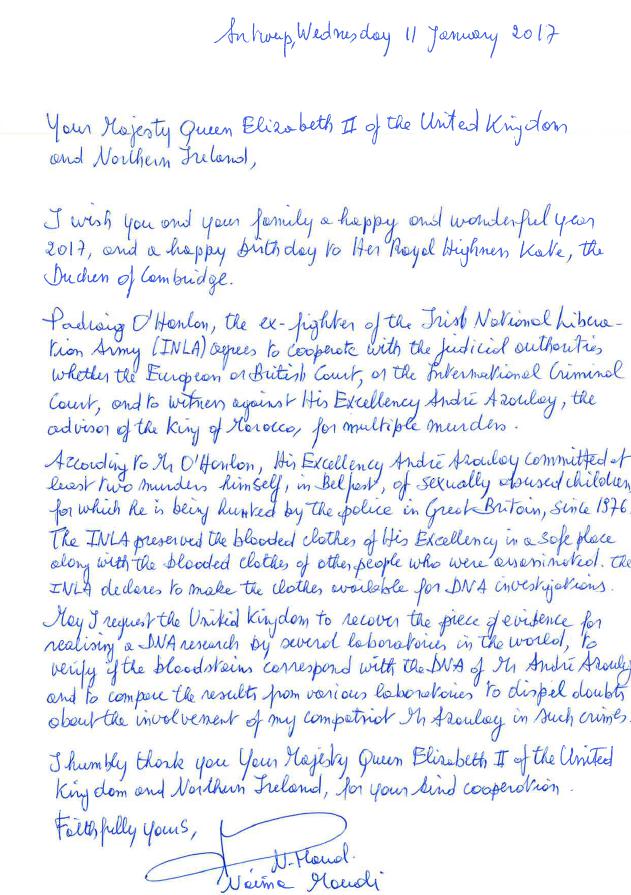 Antwerp, Wednesday 11 January 2017
Your Majesty Queen Elizabeth II of the United Kingdom
and Northern Ireland,
I wish you and your family a happy and wonderful year
2017, and a happy birthday to Her Royal Highness Kate, the
Duchen of Cambridge.
Padraig O'Hanlon, the ex-fighter of the Irish National Libera-
tion Army (INLA) agrees to cooperate with the judicial authorities
whether the European or British Court, or the International Criminal
Court, and to witness against His Excellency André Azoulay, the
advisor of the King of Morocco, for multiple murders.
According to Mr O'Hanlon, His Excellency André Azoulay committed at
least two murders himself, in Belfast, of sexually abused children
for which he is being hunted by the police in Great-Britain, since 1976.
The INLA preserved the blooded clothes of His Excellency in a safe place
along with the blooded clothes of other people who were assassinated. The
INLA declares to make the clothes available for DNA investigations.
May I request the United Kingdom to recover the piece of evidence for
realising a DNA research by several laboratories in the world, to
verify if the bloodstains correspond with the DNA of Mr André Azoulay
and to compare the results from various laboratories to dispel doubts
about the involvement of my compatriot Mr Azoulay in such crimes.
I humbly thank you Your Majesty Queen Elizabeth II of the United
Kingdom and Northern Ireland, for your kind cooperation.
Faithfully yours,
Naïma